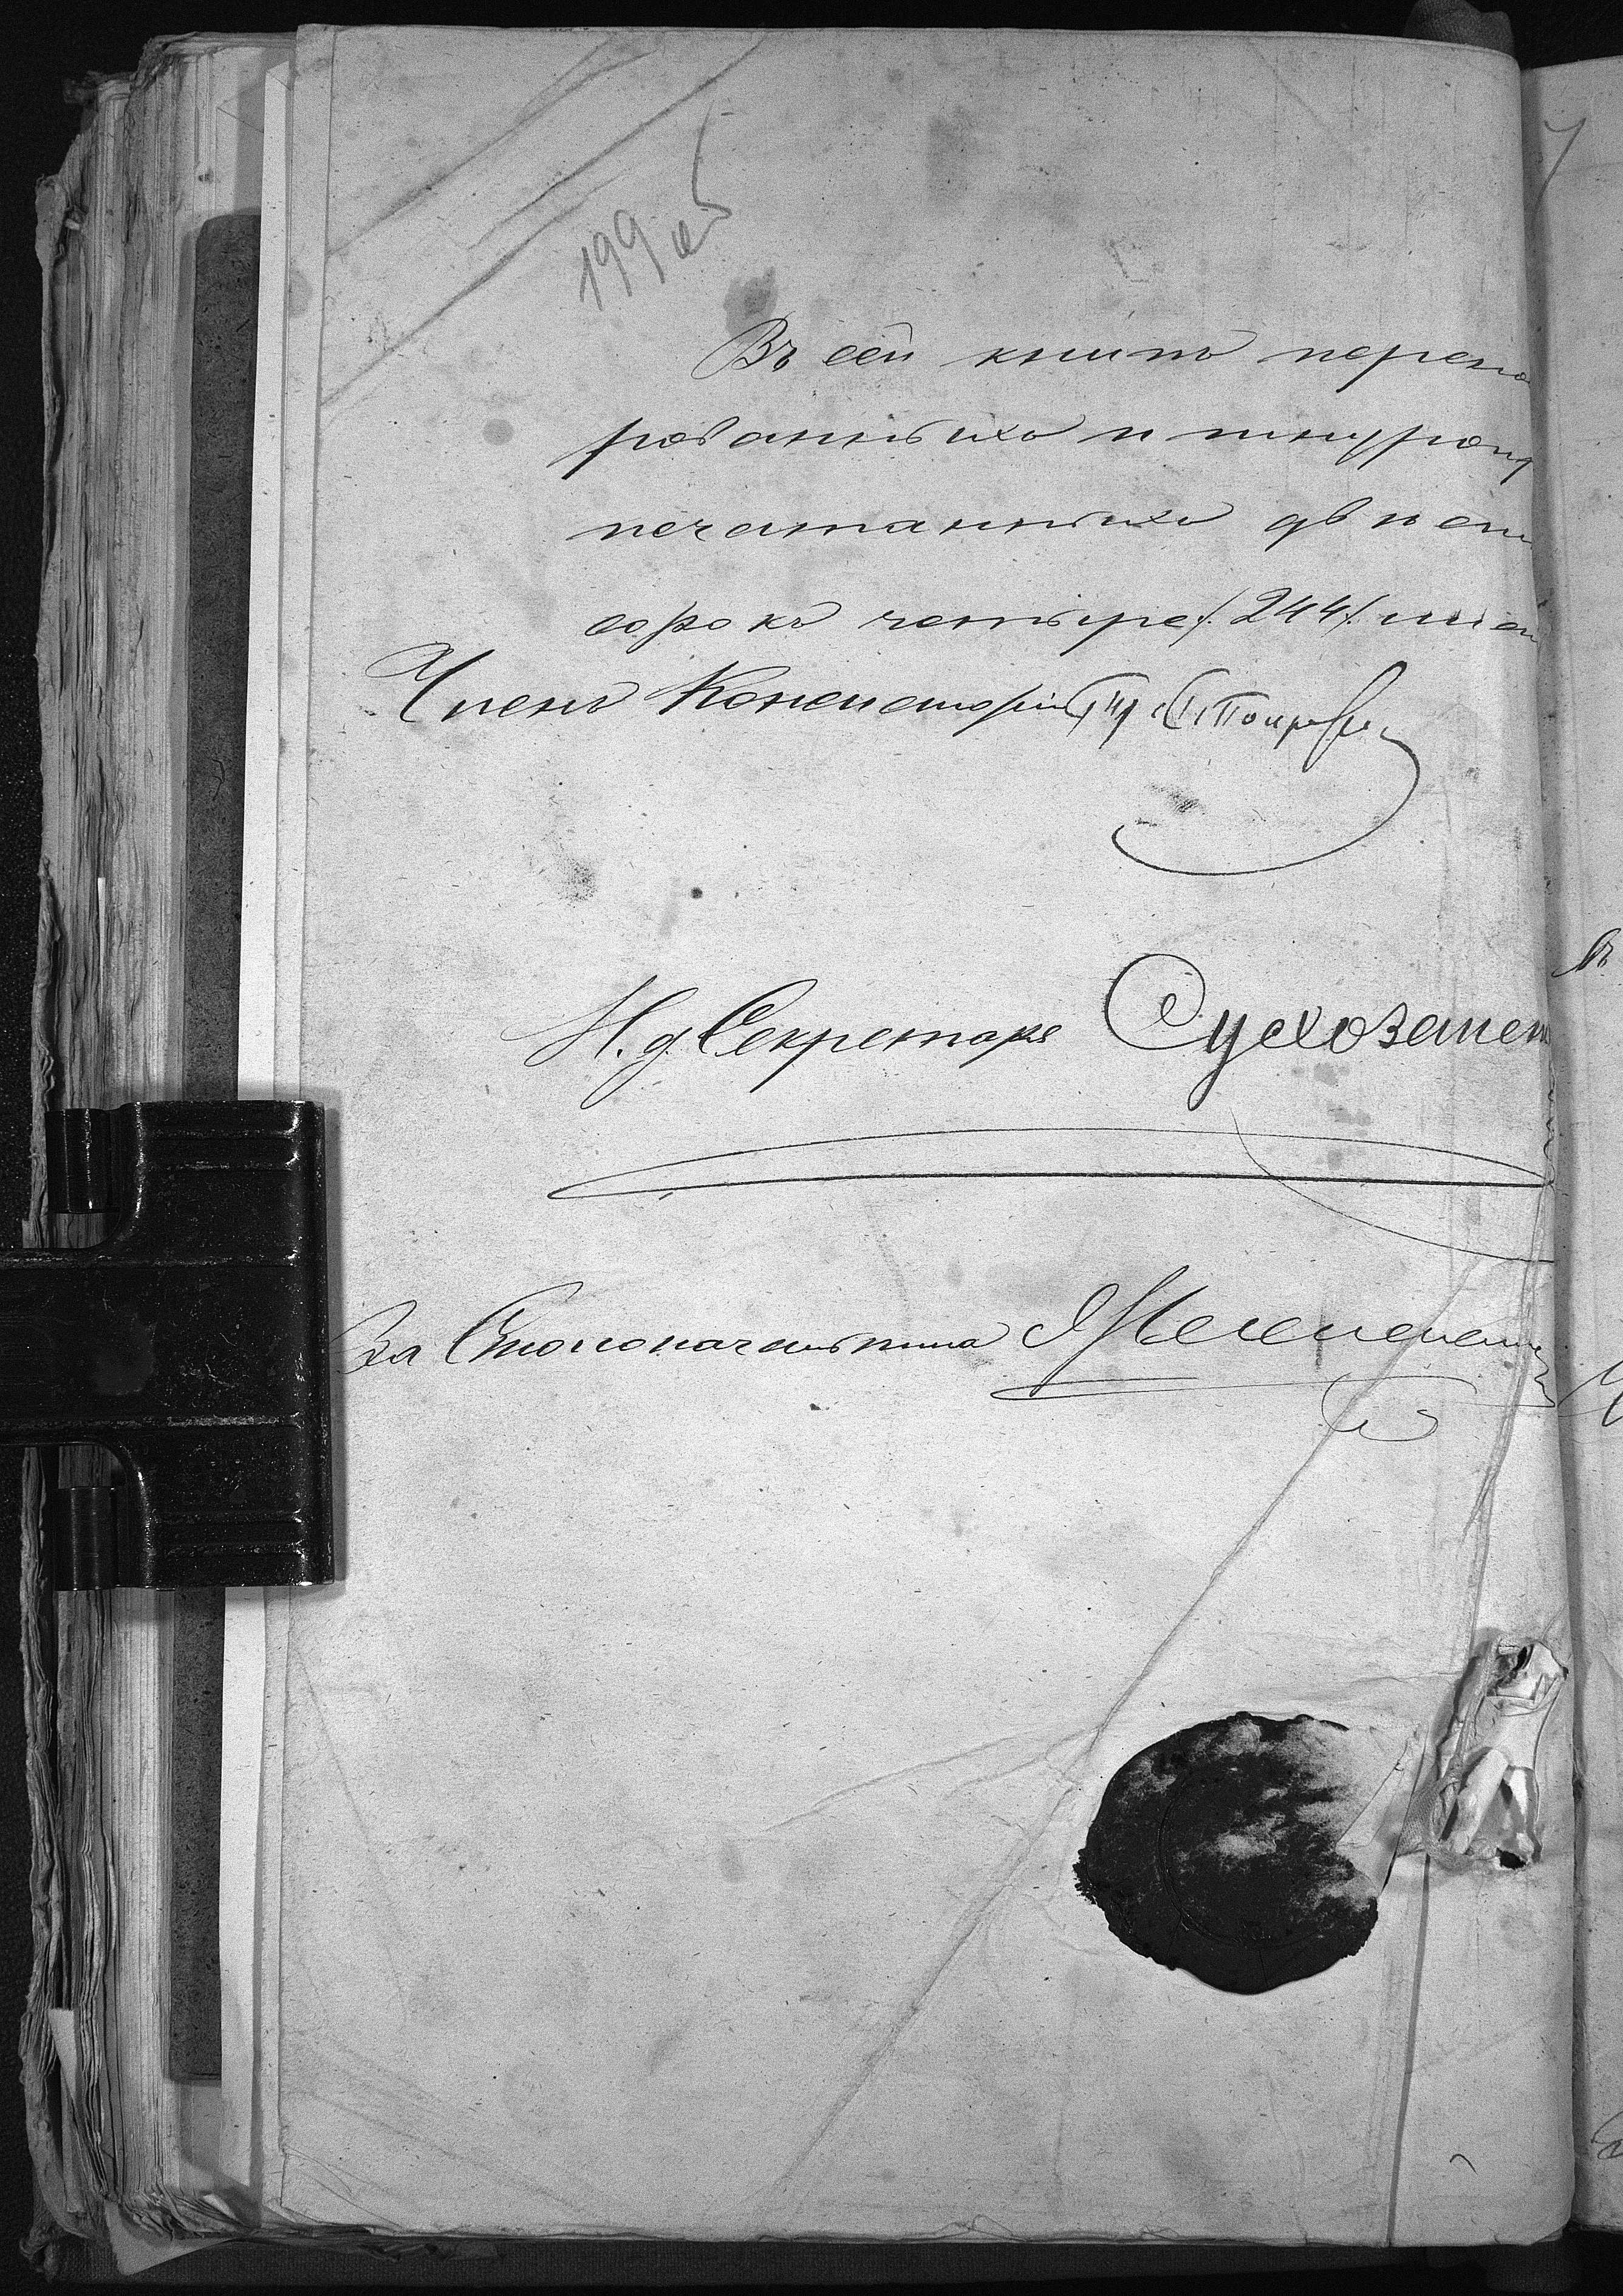 199 об
Въ сей книгѣ перено
рованныхъ и шнурозап
печатанныхъ двѣсти
сорокъ четыре /:244:/ листа
Членъ Консисторіи
И. д. Секретаря Сухозанет
За Столоначальника